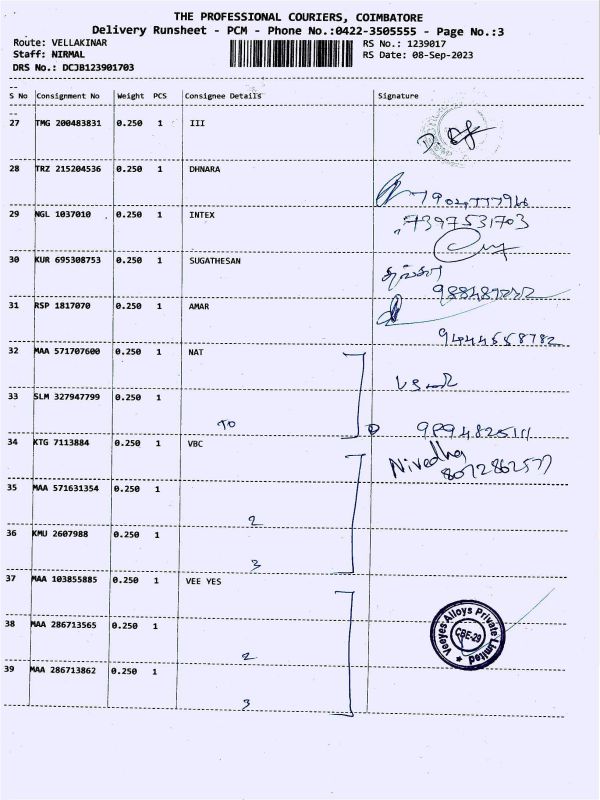 THE PROFESSIONAL COURIERS, COIMBATORE
Delivery Runsheet - PCM - Phone No.:0422-3505555 - Page No.:3
Route: VELLAKINAR RS No.: 1239017
Staff: NIRMAL RS Date: 08-Sep-2023
DRS No.: DCJB123901703
--
S No Consignment No Weight PCS Consignee Details Signature
--
27 TMG 200483831 0.250 1 III
28 TRZ 215204536 0.250 1 DHNARA
29 NGL 1037010 0.250 1 INTEX
7397531703
30 KUR 695308753 0.250 1 SUGATHESAN
31 RSP 1817070 0.250 1 AMAR
9444558782
32 MAA 571707600 0.250 1 NAT
33 SLM 327947799 0.250 1
TO 9894825111
34 KTG 7113884 0.250 1 VBC
Nivedha
8072862577
35 MAA 571631354 0.250 1
2
36 KMU 2607988 0.250 1
3
37 MAA 103855885 0.250 1 VEE YES
38 MAA 286713565 0.250 1
Veeyes Alloys Private Limited
CBE-29
2
39 MAA 286713862 0.250 1
3